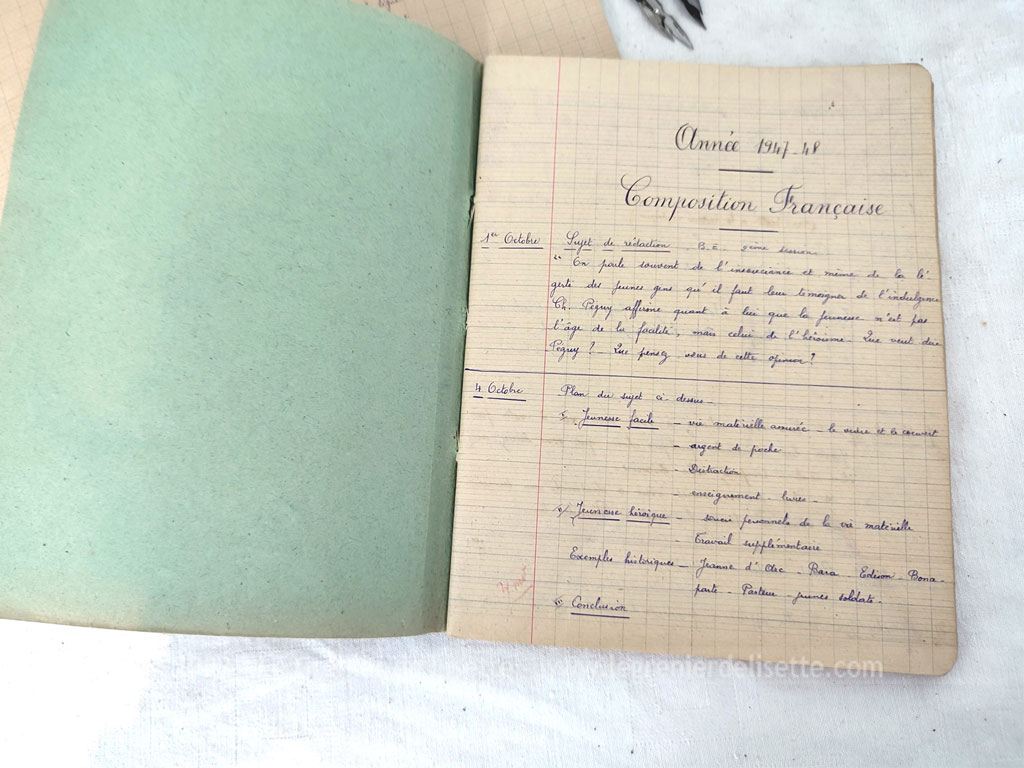 Année 1947-48
Composition Française
1er Octobre Sujet de rédaction - B.E. 2ème session
"On parle souvent de l'insouciance et même de la lé-
gerté des jeunes gens qu'il faut leur témoigner de l'indulgence
Ch. Péguy affirme quant à lui que la jeunesse n'est pas
l'âge de la facilité, mais celui de l'héroïsme - Que veut dire
Péguy ? - Que pensez vous de cette opinion ?
4 Octobre Plan du sujet ci-dessus -
Jeunesse facile - vie matérielle assurée - le vivre et le couvert
- argent de poche
- Distraction
- enseignement - livres -
Jeunesse héroïque - soucis personnels de la vie matérielle
- Travail supplémentaire
Exemples historiques - Jeanne d'Arc - Bara - Edison - Bona-
parte - Pasteur - jeunes soldats -
Conclusion
legrenierdelisette.com